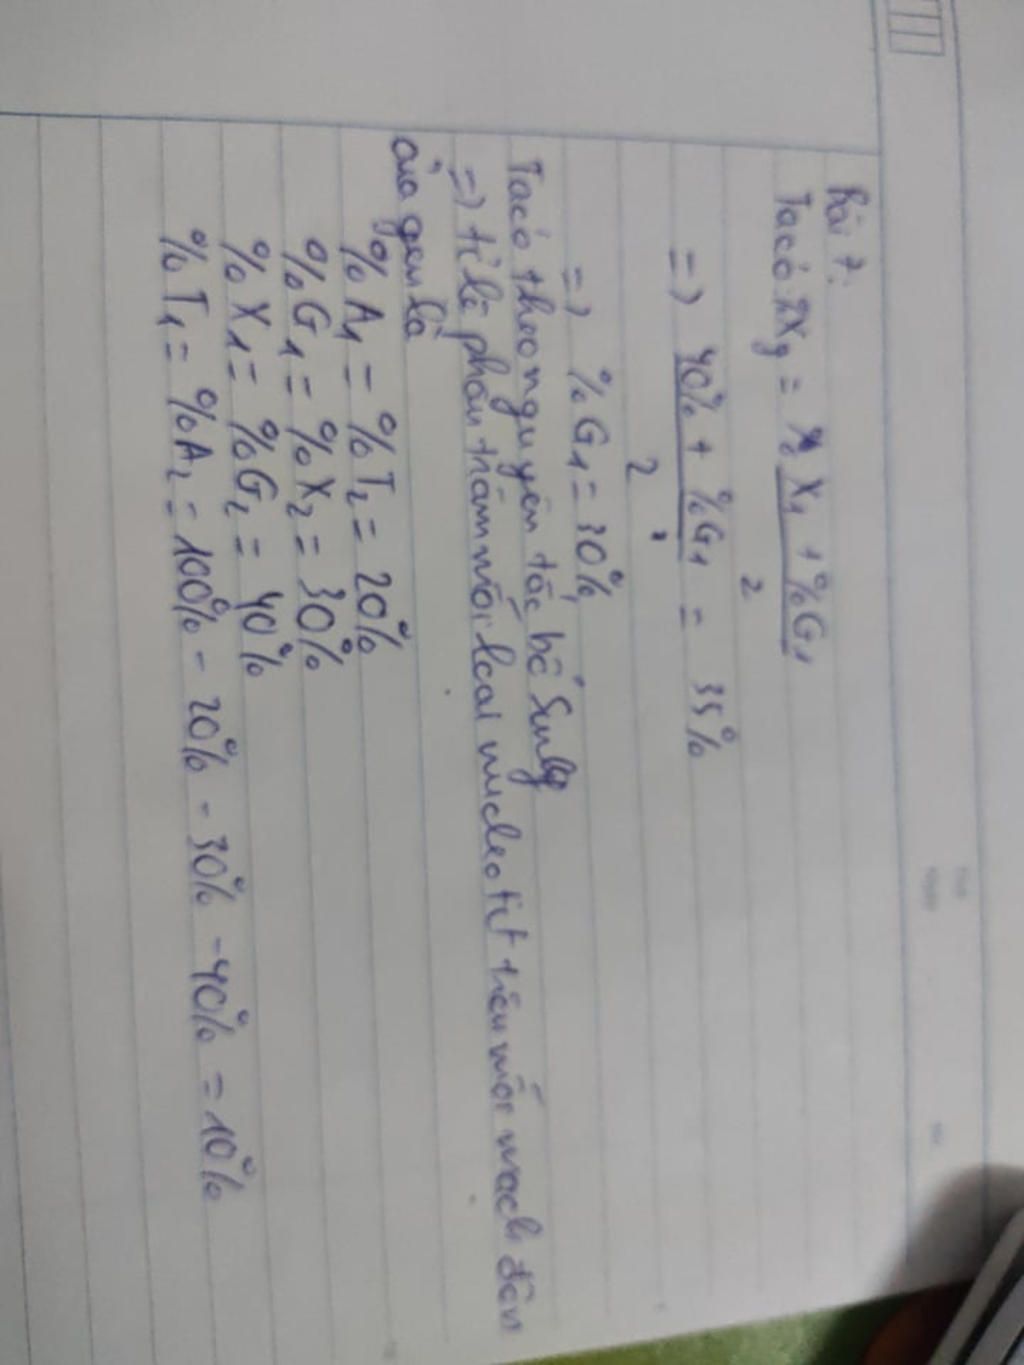 Bài 7:
Ta có %Xg = % X1 + %G1
2
=> 40% + %G1 = 35%
2
=> %G1 = 30%
Ta có theo nguyên tắc bổ sung
=> tỉ lệ phần trăm mỗi loại nucleotit trên mỗi mạch đơn
của gen là
%A1 = %T2 = 20%
%G1 = %X2 = 30%
%X1 = %G2 = 40%
%T1 = %A2 = 100% - 20% - 30% - 40% = 10%